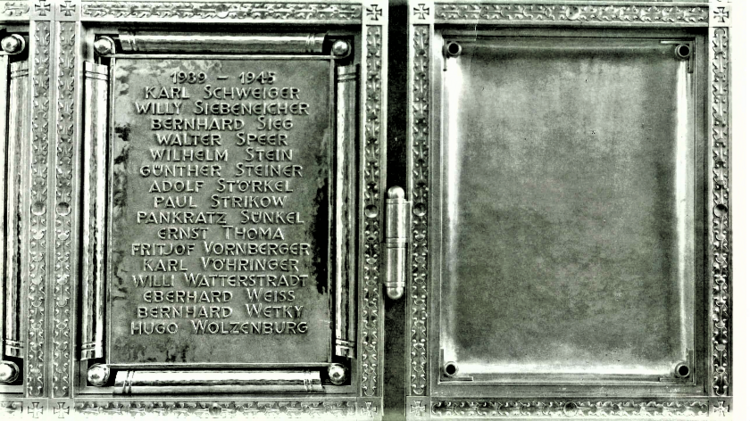 1939 – 1945
KARL SCHWEIGER
WILLY SIEBENEICHER
BERNHARD SIEG
WALTER SPEER
WILHELM STEIN
GÜNTHER STEINER
ADOLF STÖRKEL
PAUL STRIKOW
PANKRATZ SÜNKEL
ERNST THOMA
FRITJOF VORNBERGER
KARL VÖHRINGER
WILLI WATTERSTRADT
EBERHARD WEISS
BERNHARD WETKY
HUGO WOLZENBURG